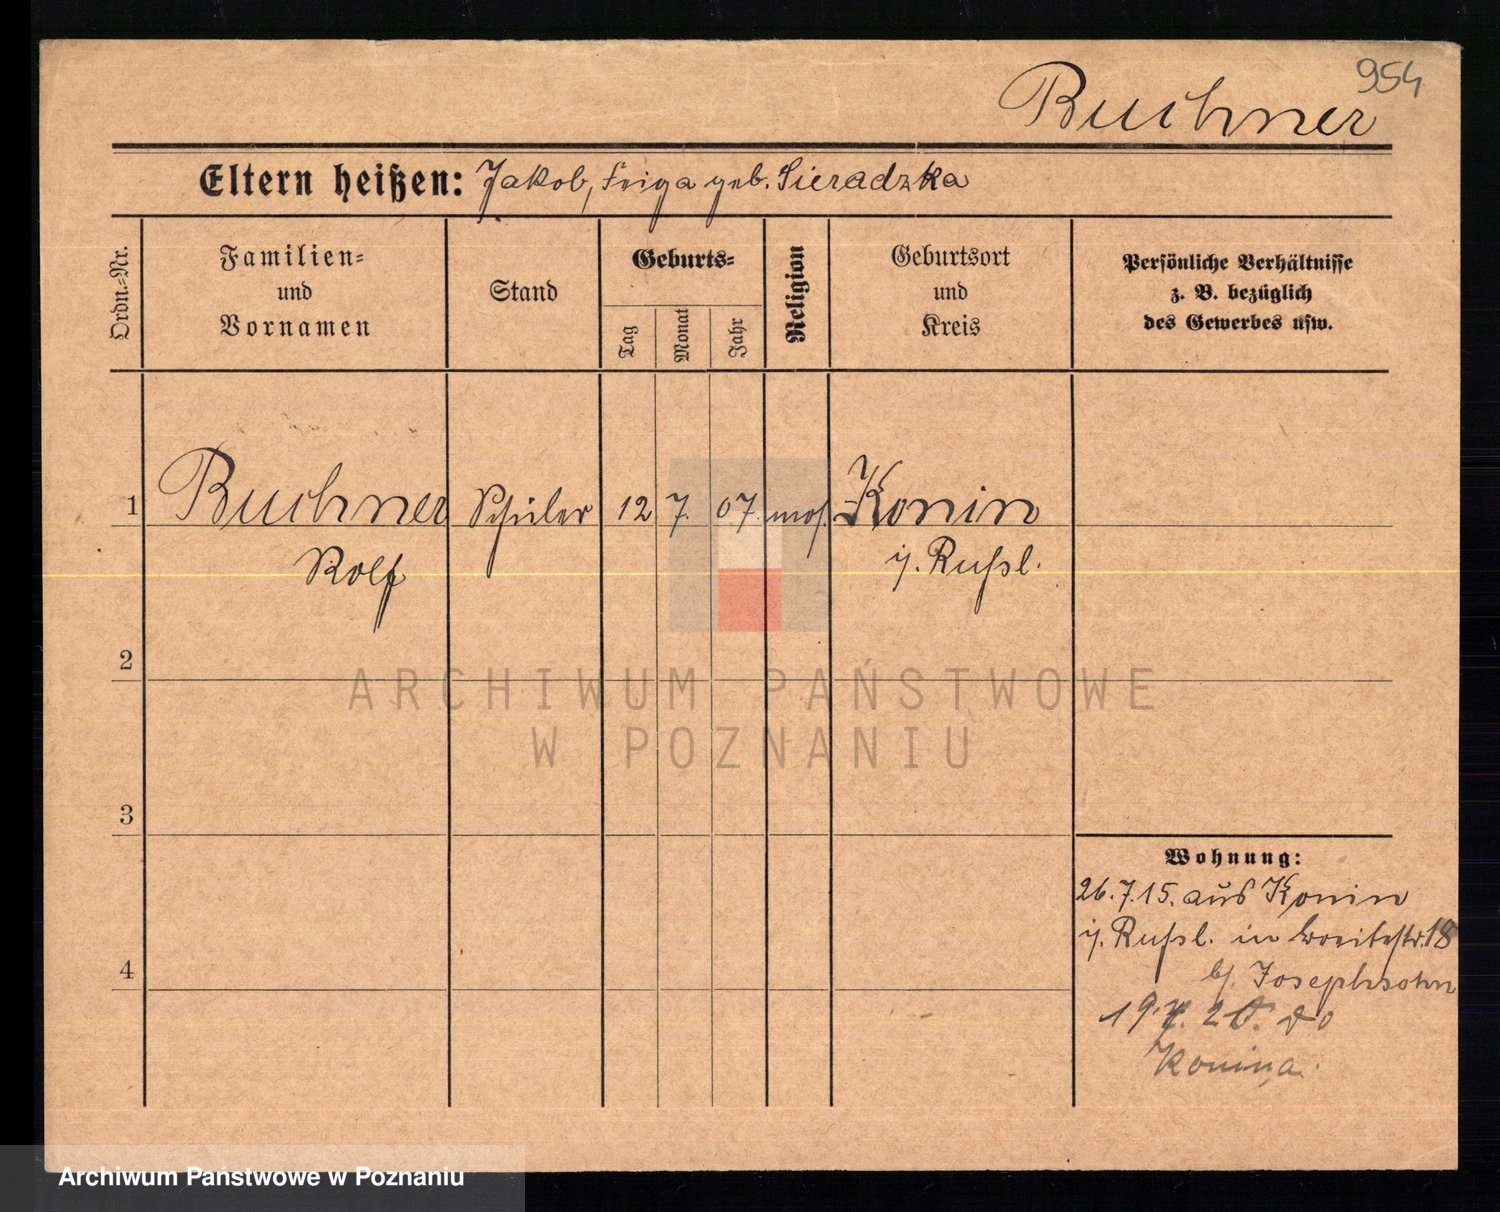 954
Buchner
Eltern heißen: Jakob, Feiga geb. Sieradzka
Ordn.-Nr.
Familien-
und
Vornamen
Stand
Geburts-
Tag
Monat
Jahr
Religion
Geburtsort
und
Kreis
Persönliche Verhältnisse
z. B. bezüglich
des Gewerbes usw.
1 Buchner Schüler 12 7. 07. mos. Konin
Rolf i/. Russl.
2
ARCHIWUM PAŃSTWOWE
W POZNANIU
3
Wohnung:
26.7.15. aus Konin
i/. Russl. in Breitestr. 18
4
b/. Josephsohn
19.7. 20. do
Konina.
Archiwum Państwowe w Poznaniu